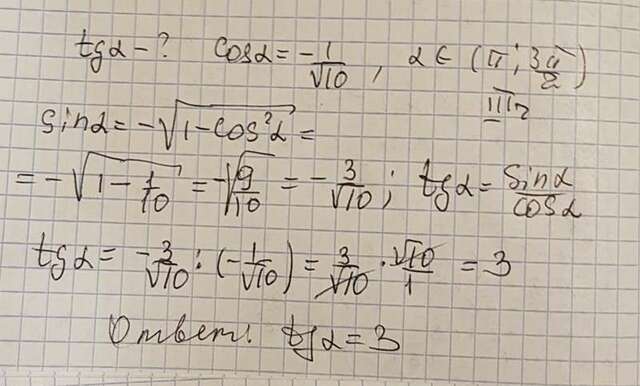 tgα - ? cosα = -1/√10, α ∈ (π; 3π/2)
III ч
sinα = -√(1-cos²α) =
= -√(1 - 1/10) = -√(9/10) = -3/√10; tgα = sinα/cosα
tgα = -3/√10 : (-1/√10) = 3/√10 · √10/1 = 3
Ответ: tgα = 3